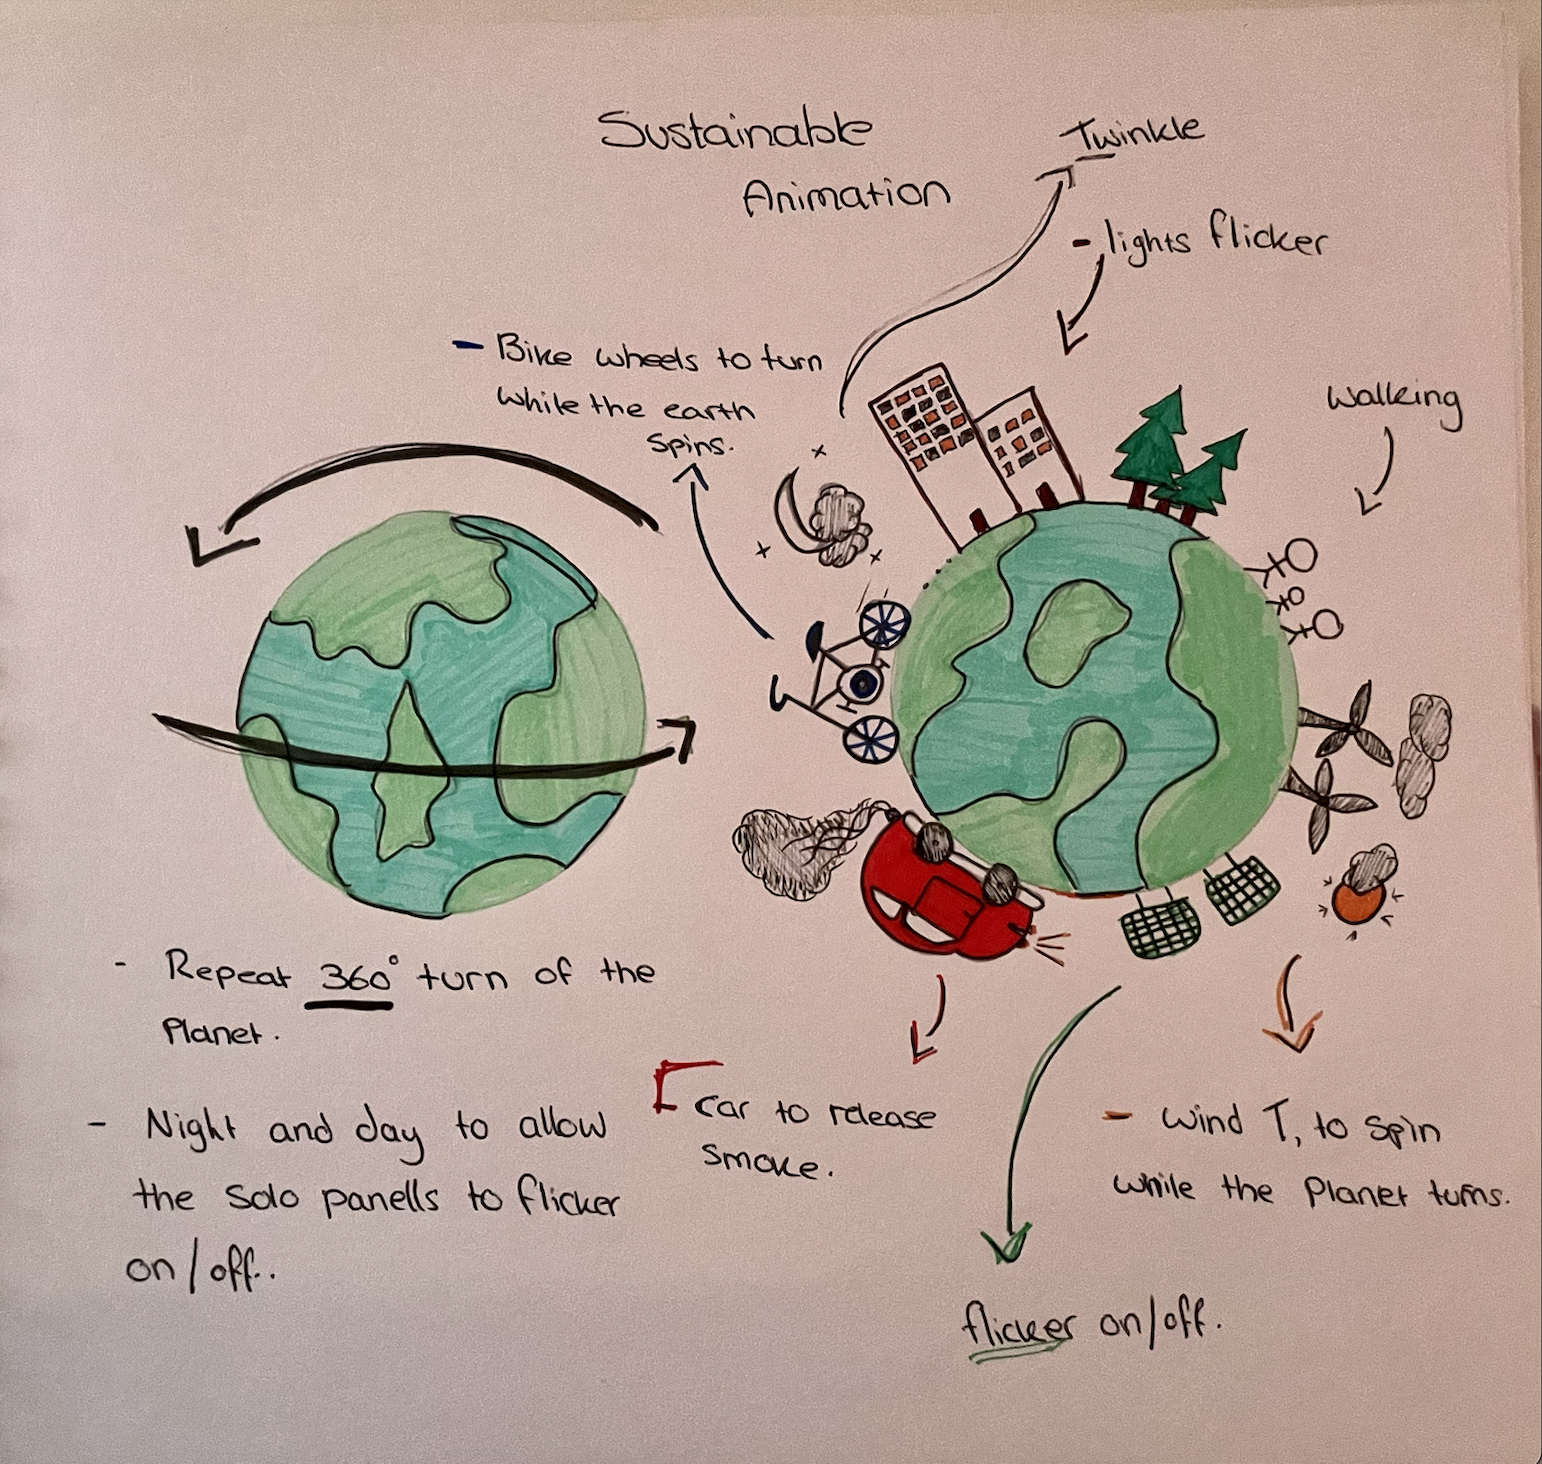 Sustainable
Animation
Twinkle
- lights flicker
- Bike wheels to turn
while the earth
spins.
walking
- Repeat 360° turn of the
Planet.
- Night and day to allow
the Solo panells to flicker
on/off..
car to release
smoke.
- wind T, to spin
while the Planet turns.
flicker on/off.